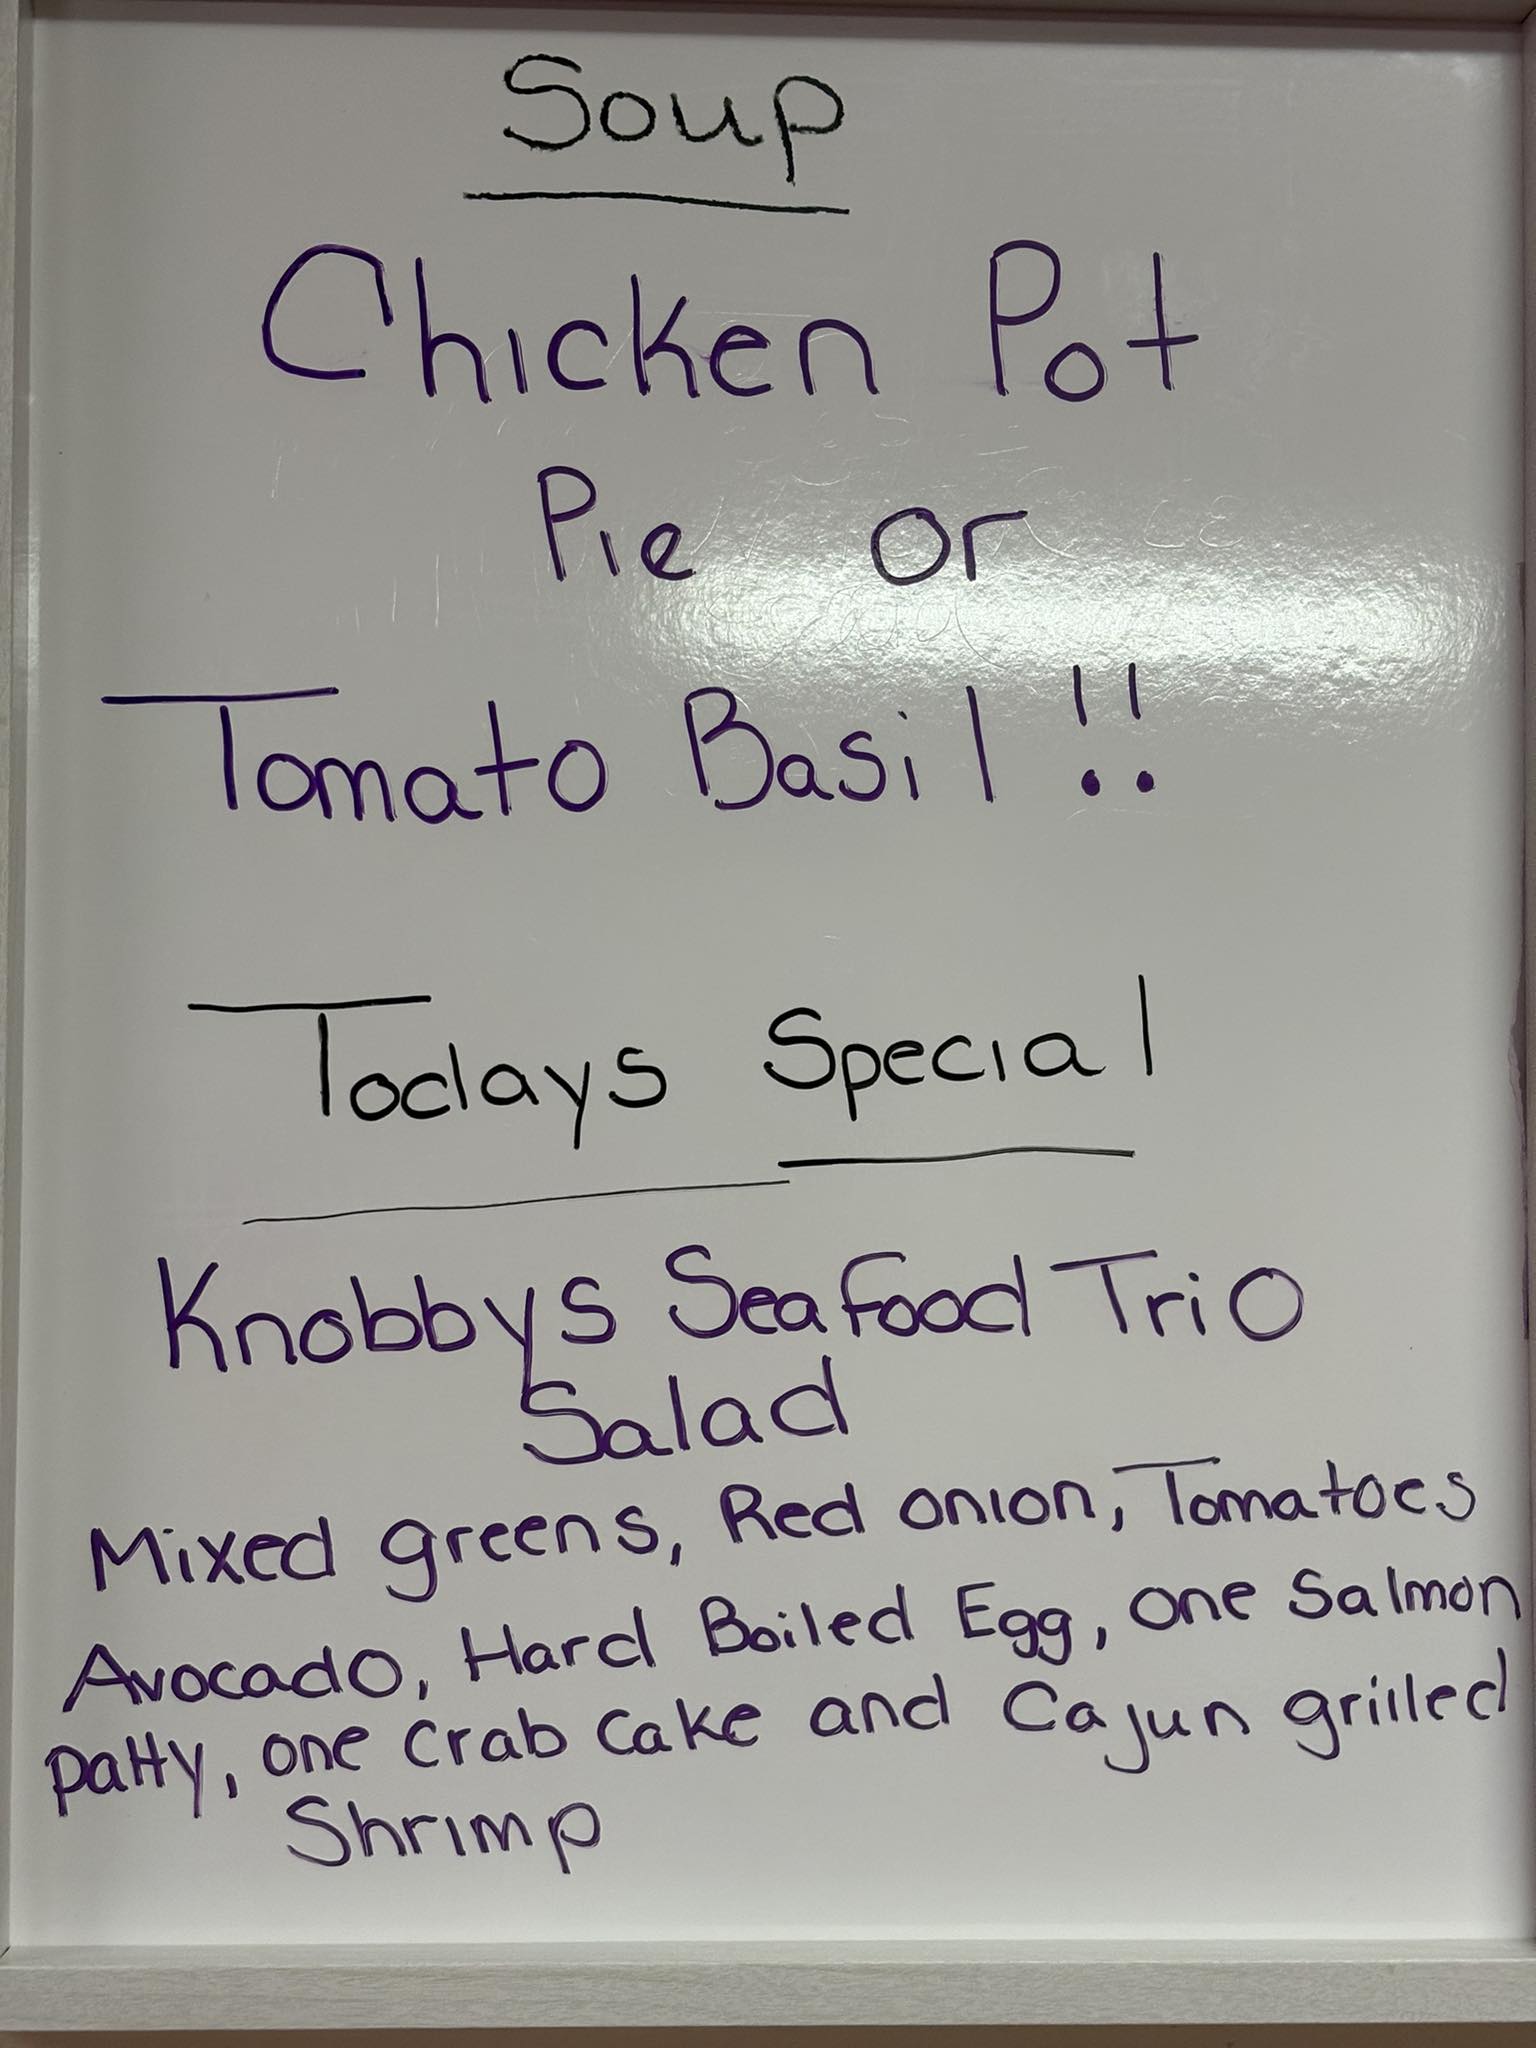 Soup
Chicken Pot
Pie or
Tomato Basil !!
Todays Special
Knobbys Seafood Trio
Salad
Mixed greens, Red onion, Tomatoes
Avocado, Hard Boiled Egg, one Salmon
patty, one crab cake and Cajun grilled
Shrimp